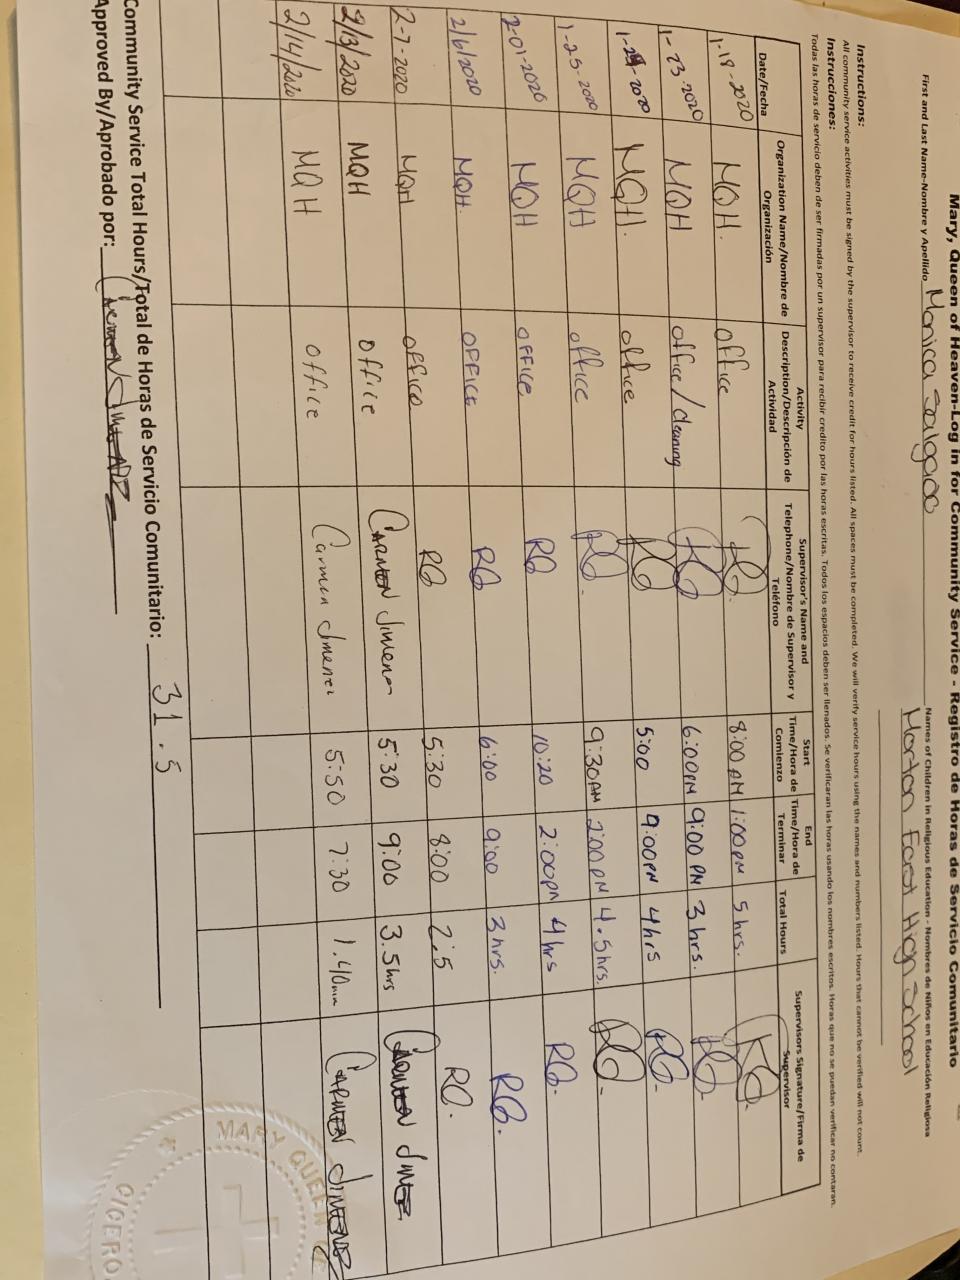 Mary, Queen of Heaven-Log in for Community Service - Registro de Horas de Servicio Comunitario
First and Last Name-Nombre y Apellido Monica Salgado Names of Children in Religious Education - Nombres de Niños en Educación Religiosa
Morton East High School
Instructions:
All community service activities must be signed by the supervisor to receive credit for hours listed. All spaces must be completed. We will verify service hours using the names and numbers listed. Hours that cannot be verified will not count.
Instrucciones:
Todas las horas de servicio deben de ser firmadas por un supervisor para recibir credito por las horas escritas. Todos los espacios deben ser llenados. Se verificaran las horas usando los nombres escritos. Horas que no se puedan verificar no contaran.
Date/Fecha Organization Name/Nombre de Organización Activity Description/Descripción de Actividad Supervisor's Name and Telephone/Nombre de Supervisor y Teléfono Start Time/Hora de Comienzo End Time/Hora de Terminar Total Hours Supervisors Signature/Firma de Supervisor
1-18-2020 MQH. office RG. 8:00 AM 1:00PM 5hrs. RG.
1-23-2020 MQH office/cleaning RG 6:00PM 9:00 PM 3hrs. RG.
1-24-2020 MQH. office RG 5:00 9:00PM 4hrs RG.
1-25-2020 MQH office RG. 9:30AM 2:00PM 4.5hrs. RG.
2-01-2020 MQH OFFICE RG 10:20 2:00PM 4hrs RG.
2/6/2020 MQH. OFFICE RG 6:00 9:00 3hrs. RG.
2-7-2020 MQH office RG 5:30 8:00 2.5 RG.
2/13/2020 MQH office Carmen Jimenez 5:30 9:00 3.5hrs Carmen Jimenez
2/14/2020 MQH office Carmen Jimenez 5:50 7:30 1.40min Carmen Jimenez
Community Service Total Hours/Total de Horas de Servicio Comunitario: 31.5
Approved By/Aprobado por: Carmen Jimenez
MARY QUEEN OF
CICERO